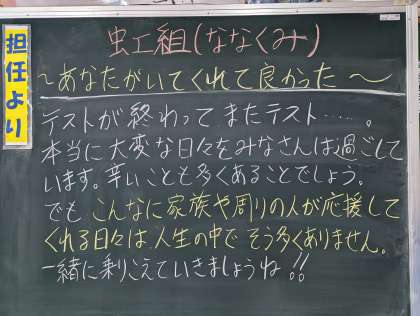 担任より
虹組(ななくみ)
～あなたがいてくれて良かった～
テストが終わってまたテスト……。
本当に大変な日々をみなさんは過ごして
います。辛いことも多くあることでしょう。
でもこんなに家族や周りの人が応援して
くれる日々は人生の中でそう多くありません。
一緒に乗りこえていきましょうね!!